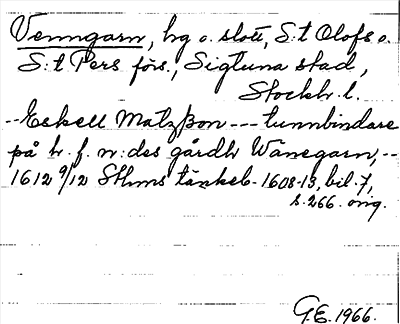 Venngarn, hg o. slott, S:t Olofs o.
S:t Pers förs., Sigtuna stad,
Stockh. l.
-- Eskell Matzßon --- tunnbindare
på h. f. n:des gårdh Wänegarn, --
1612 9/12 Sthms tänkeb. 1608-13, bil. 7,
s. 266. orig.
G.E. 1966.